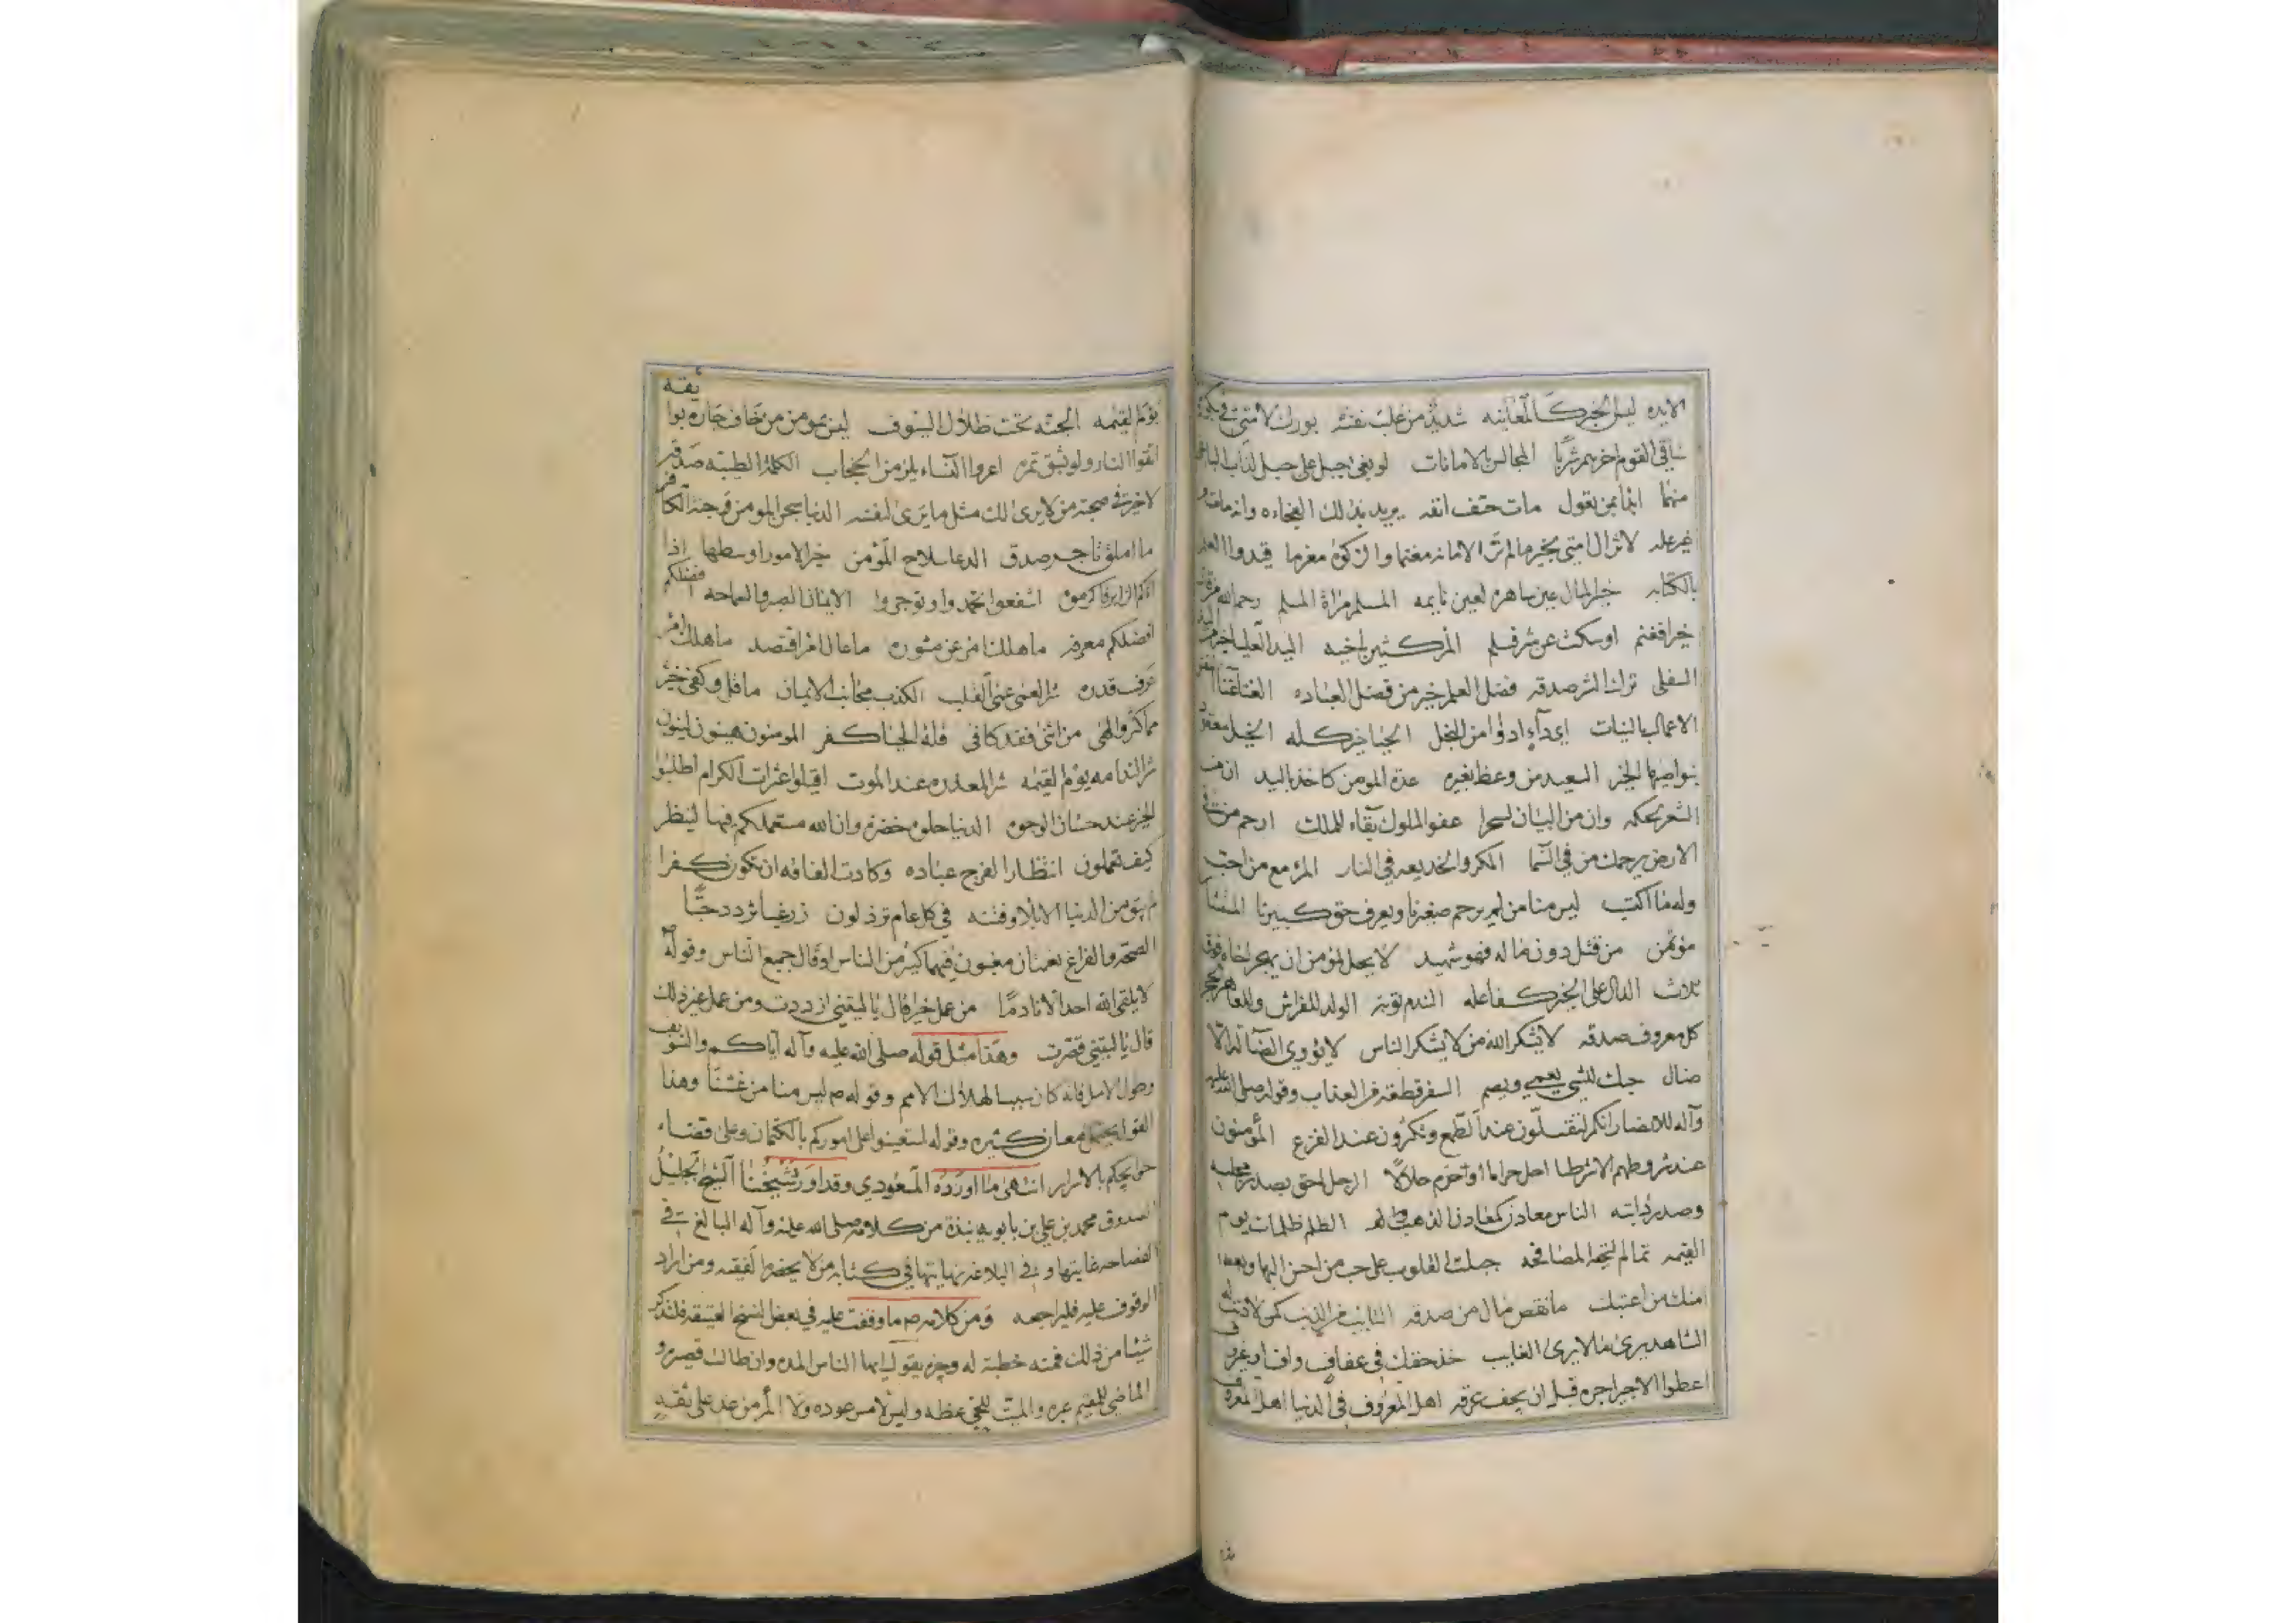 الايده ليس الخبر كالمعاينه شديد من غلب نفسه بورك لامتي في بكورها
ساقي القوم اخرهم شربا المجالس بالامانات لو بغى جبل على جبل لذاب الباغي
منهما ابدا بمن تعول مات حتف انفه يريد بذلك الفجاءه وانه مات و
غير عله لا تزال امتي بخير ما لم تر الامانه مغنما والزكوة مغرما قيدوا العلم
بالكتابه خير المال عين ساهره لعين نايمه المسلم مرآة المسلم رحم الله من قال
خيرا فغنم او سكت عن شر فسلم المرء كثير باخيه اليد العليا خير من اليد
السفلى ترك الشر صدقه فضل العلم خير من فضل العباده الغنا غنا النفس
الاعمال بالنيات اي داء ادوا من البخل الحيا خير كله الخيل معقود
بنواصيها الخير السعيد من وعظ بغيره عدة المومن كاخذ باليد ان من
الشعر لحكمه وان من البيان لسحرا عفو الملوك بقاء للملك ارحم من في
الارض يرحمك من في السما المكر والخديعه في النار المرء مع من احب
وله ما اكتسب ليس منا من لم يرحم صغيرنا ويعرف حق كبيرنا المستشار
مؤتمن من قتل دون ماله فهو شهيد لا يحل لمؤمن ان يهجر اخاه فوق
ثلاث الدال على الخير كفاعله الندم توبة الولد للفراش وللعاهر الحجر
كل معروف صدقه لا يشكر الله من لا يشكر الناس لا يؤوي الضالة الا
ضال حبك للشي يعمي ويصم السفر قطعة من العذاب وقوله صلى الله عليه
وآله للانصار انكم لتقلون عند الطمع وتكثرون عند الفزع المؤمنون
عند شروطهم الا شرطا احل حراما او حرم حلالا الرجل احق بصدر مجلسه
وصدر دابته الناس معادن كمعادن الذهب والفضه الظلم ظلمات يوم
القيمه تمام التحية المصافحه جبلت القلوب على حب من احسن اليها
امنك من اعتبك ما نقص مال من صدقه التايب من الذنب كمن لا ذنب له
الشاهد يرى ما لا يرى الغايب خذ حقك في عفاف واف او غير واف
اعطوا الاجير اجره قبل ان يجف عرقه اهل المعروف في الدنيا اهل المعروف
يوم القيمه الجنه تحت ظلال السيوف ليس بمومن من خاف جاره بوائقه
اتقوا النار ولو بشق تمره اعروا النساء يلزمن الحجاب الكلمة الطيبه صدقه
لا خير في صحبة من لا يرى لك مثل ما يرى لنفسه الدنيا سجن المومن وجنة الكافر
ما املق تاجر صدق الدعا سلاح المؤمن خير الامور اوسطها اذا
اتاكم الزاير فاكرموه اشفعوا تحمدوا وتوجروا الايمان الصبر والسماحه افضلكم
افضلكم معرفه ما هلك امرء عن مشوره ما عال امرء اقتصد ما هلك امرء
عرف قدره شر العمى عمى القلب الكذب مجانب الايمان ما قل وكفى خير
مما كثر والهى من اثنى فقد كافى قلة الحيا كفر المومنون هينون لينون
شر الندامه يوم القيمه شر المعذره عند الموت اقيلوا عثرات الكرام اطلبوا
الخير عند حسان الوجوه الدنيا حلوه خضره وان الله مستعملكم فيها لينظر
كيف تعملون انتظار الفرج عباده وكادت الفاقه ان تكون كفرا
لم يبق من الدنيا الا بلاء وفتنه في كل عام ترذلون زر غبا تزدد حبا
الصحه والفراغ نعمتان مغبون فيهما كثير من الناس او قال جميع الناس وقوله
لا يلقى الله احد الا نادما من عمل خيرا قال يا ليتني ازددت ومن عمل غير ذلك
قال يا ليتني قصرت وهذا مثل قوله صلى الله عليه وآله اياكم والتسويف
وطول الامل فانه كان سببا لهلاك الامم وقوله ص ليس منا من غشنا وهذا
القول يحتمل معان كثيره وقوله استعينوا على اموركم بالكتمان وعلى قضاء
حوايجكم بالاسرار انتهى ما اورده المسعودي وقد اورد شيخنا الشيخ الجليل
الصدوق محمد بن علي بن بابويه نبذة من كلامه صلى الله عليه وآله البالغ في
الفصاحه غايتها وفي البلاغه نهايتها في كتابه من لا يحضره الفقيه ومن اراد
الوقوف عليه فليراجعه ومن كلامه ص ما وقفت عليه في بعض النسخ العتيقه فلنذكر
شيئا من ذلك فمنه خطبة له وجيزه يقول ايها الناس المده وان طالت قصيره و
الماضي للمقيم عبره والميت للحي عظه وليس لامس عوده ولا المرء من غد على ثقه